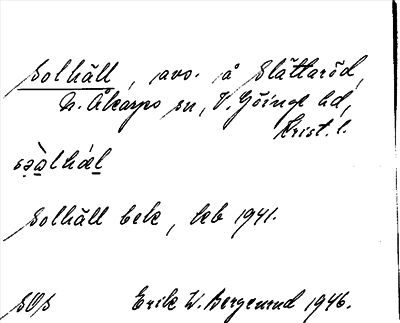 Solhäll, avs. å Slättaröd,
N. Åkarps sn, V. Göinge hd,
Krist. l.
sɔ̀alhál
Solhäll bek, kb 1941.
SOS Erik W. Bergenrud 1946.